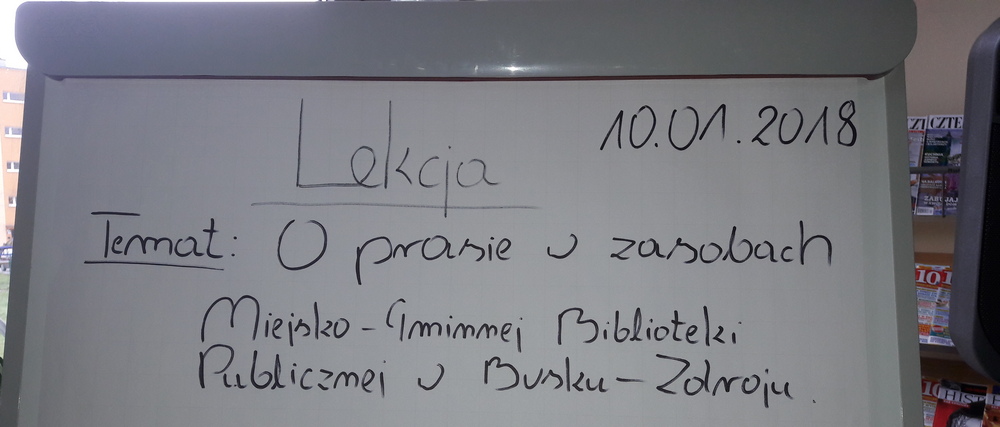 Lekcja
10.01.2018
Temat: O prasie w zasobach
Miejsko-Gminnej Biblioteki
Publicznej w Busku-Zdroju.